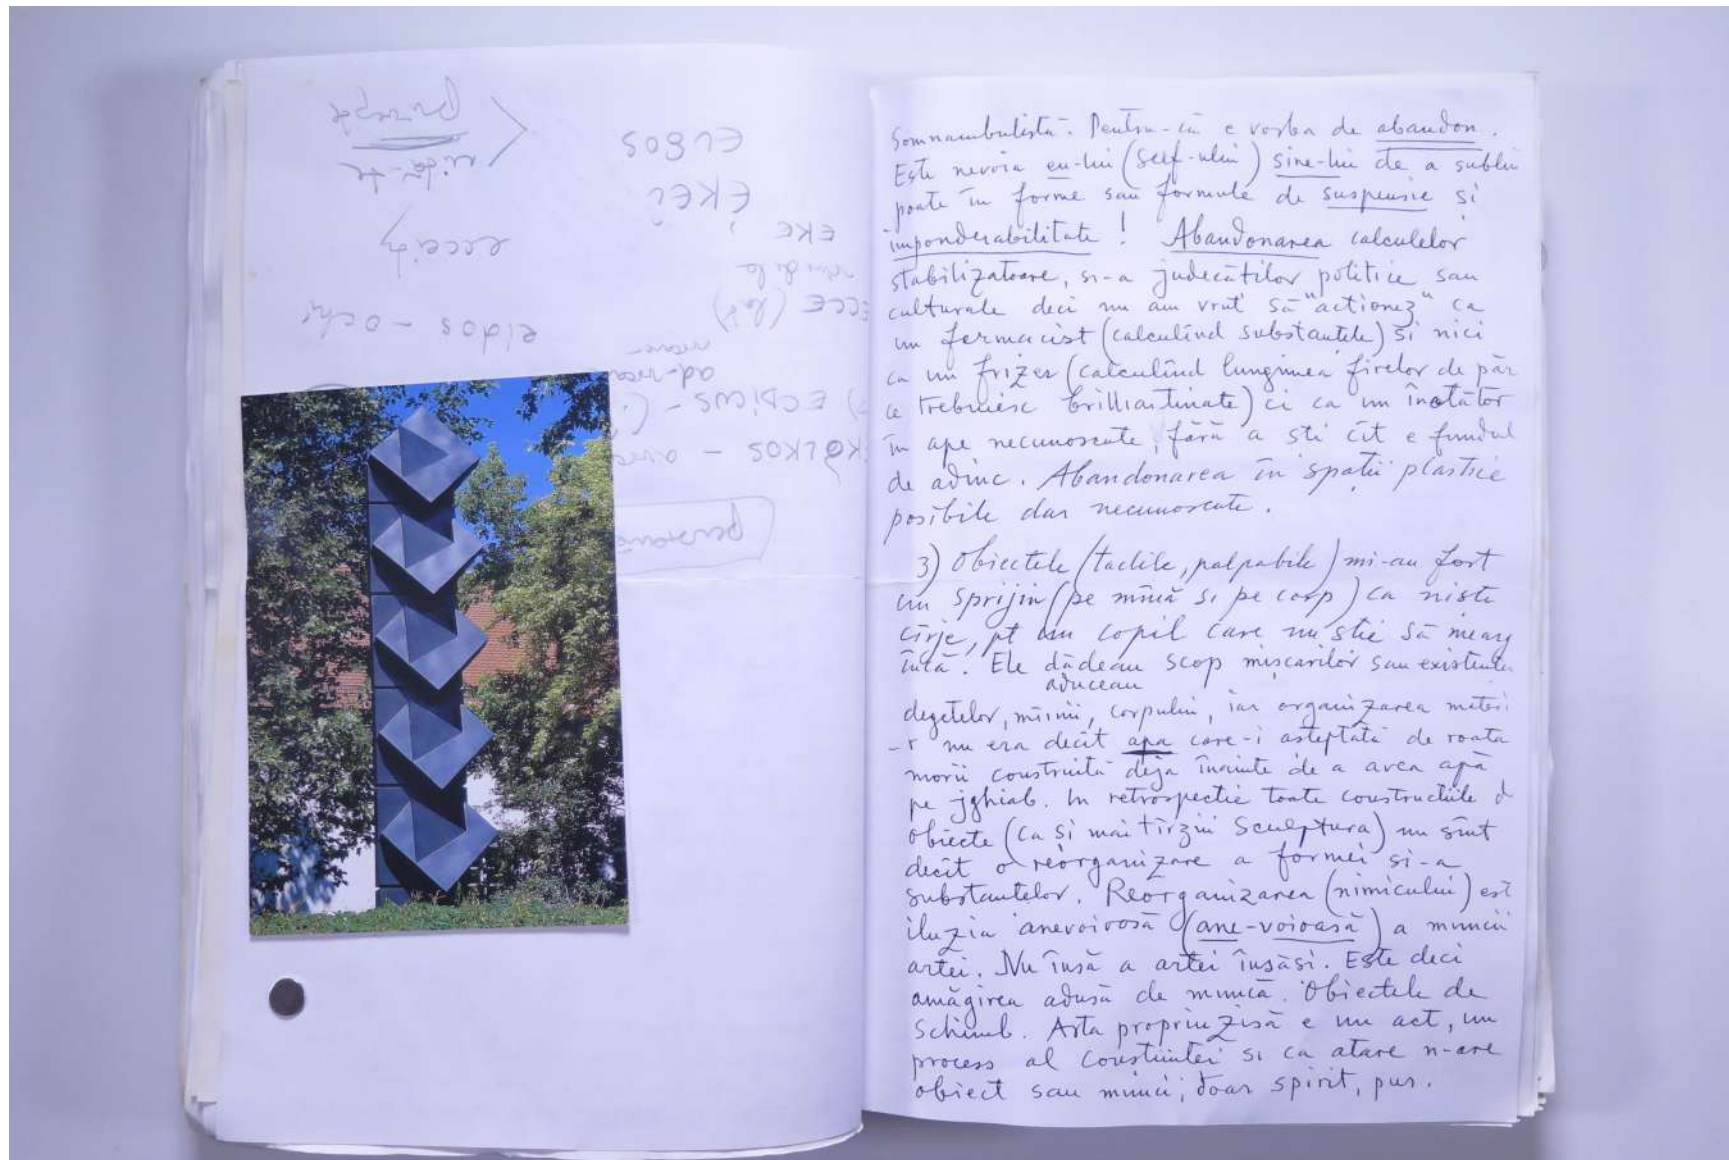 eidos - ochi
EKE
EKEI
Somnambulistă. Pentru-că e vorba de abandon.
Este nevoia eu-lui (self-ului) sine-lui de a subli
poate în forme sau formule de suspensie și
imponderabilitate! Abandonarea calculelor
stabilizatoare, si-a judecăților politice sau
culturale deci nu am vrut să "actionez" ca
un farmacist (calculînd substantele) si nici
ca un frizer (calculînd lungimea firelor de păr
ce trebuiesc brilliantinate) ci ca un înotător
în ape necunoscute, fără a sti cît e fundul
de adînc. Abandonarea în spații plastice
posibile dar necunoscute.
3) Obiectele (tactile, palpabile) mi-au fost
un sprijin (pe mînă si pe corp) ca niste
cîrje, pt un copil care nu stie să mearg
încă. Ele dădeau scop mișcarilor sau existentei
aduceau
degetelor, mîinii, corpului, iar organizarea materi
-r nu era decît apa care-i asteptată de roata
morii construită deja înainte de a avea apă
pe jghiab. In retrospectie toate constructiile d
obiecte (ca si mai tîrziu Sculptura) nu sînt
decît o reorganizare a formei si-a
substantelor. Reorganizarea (nimicului) est
iluzia anevoioasă (ane-voioasă) a muncii
artei. Nu însă a artei însăsi. Este deci
amăgirea adusă de muncă. Obiectele de
schimb. Arta propriu zisă e un act, un
process al constiintei si ca atare n-are
obiect sau munci; doar spirit, pur.